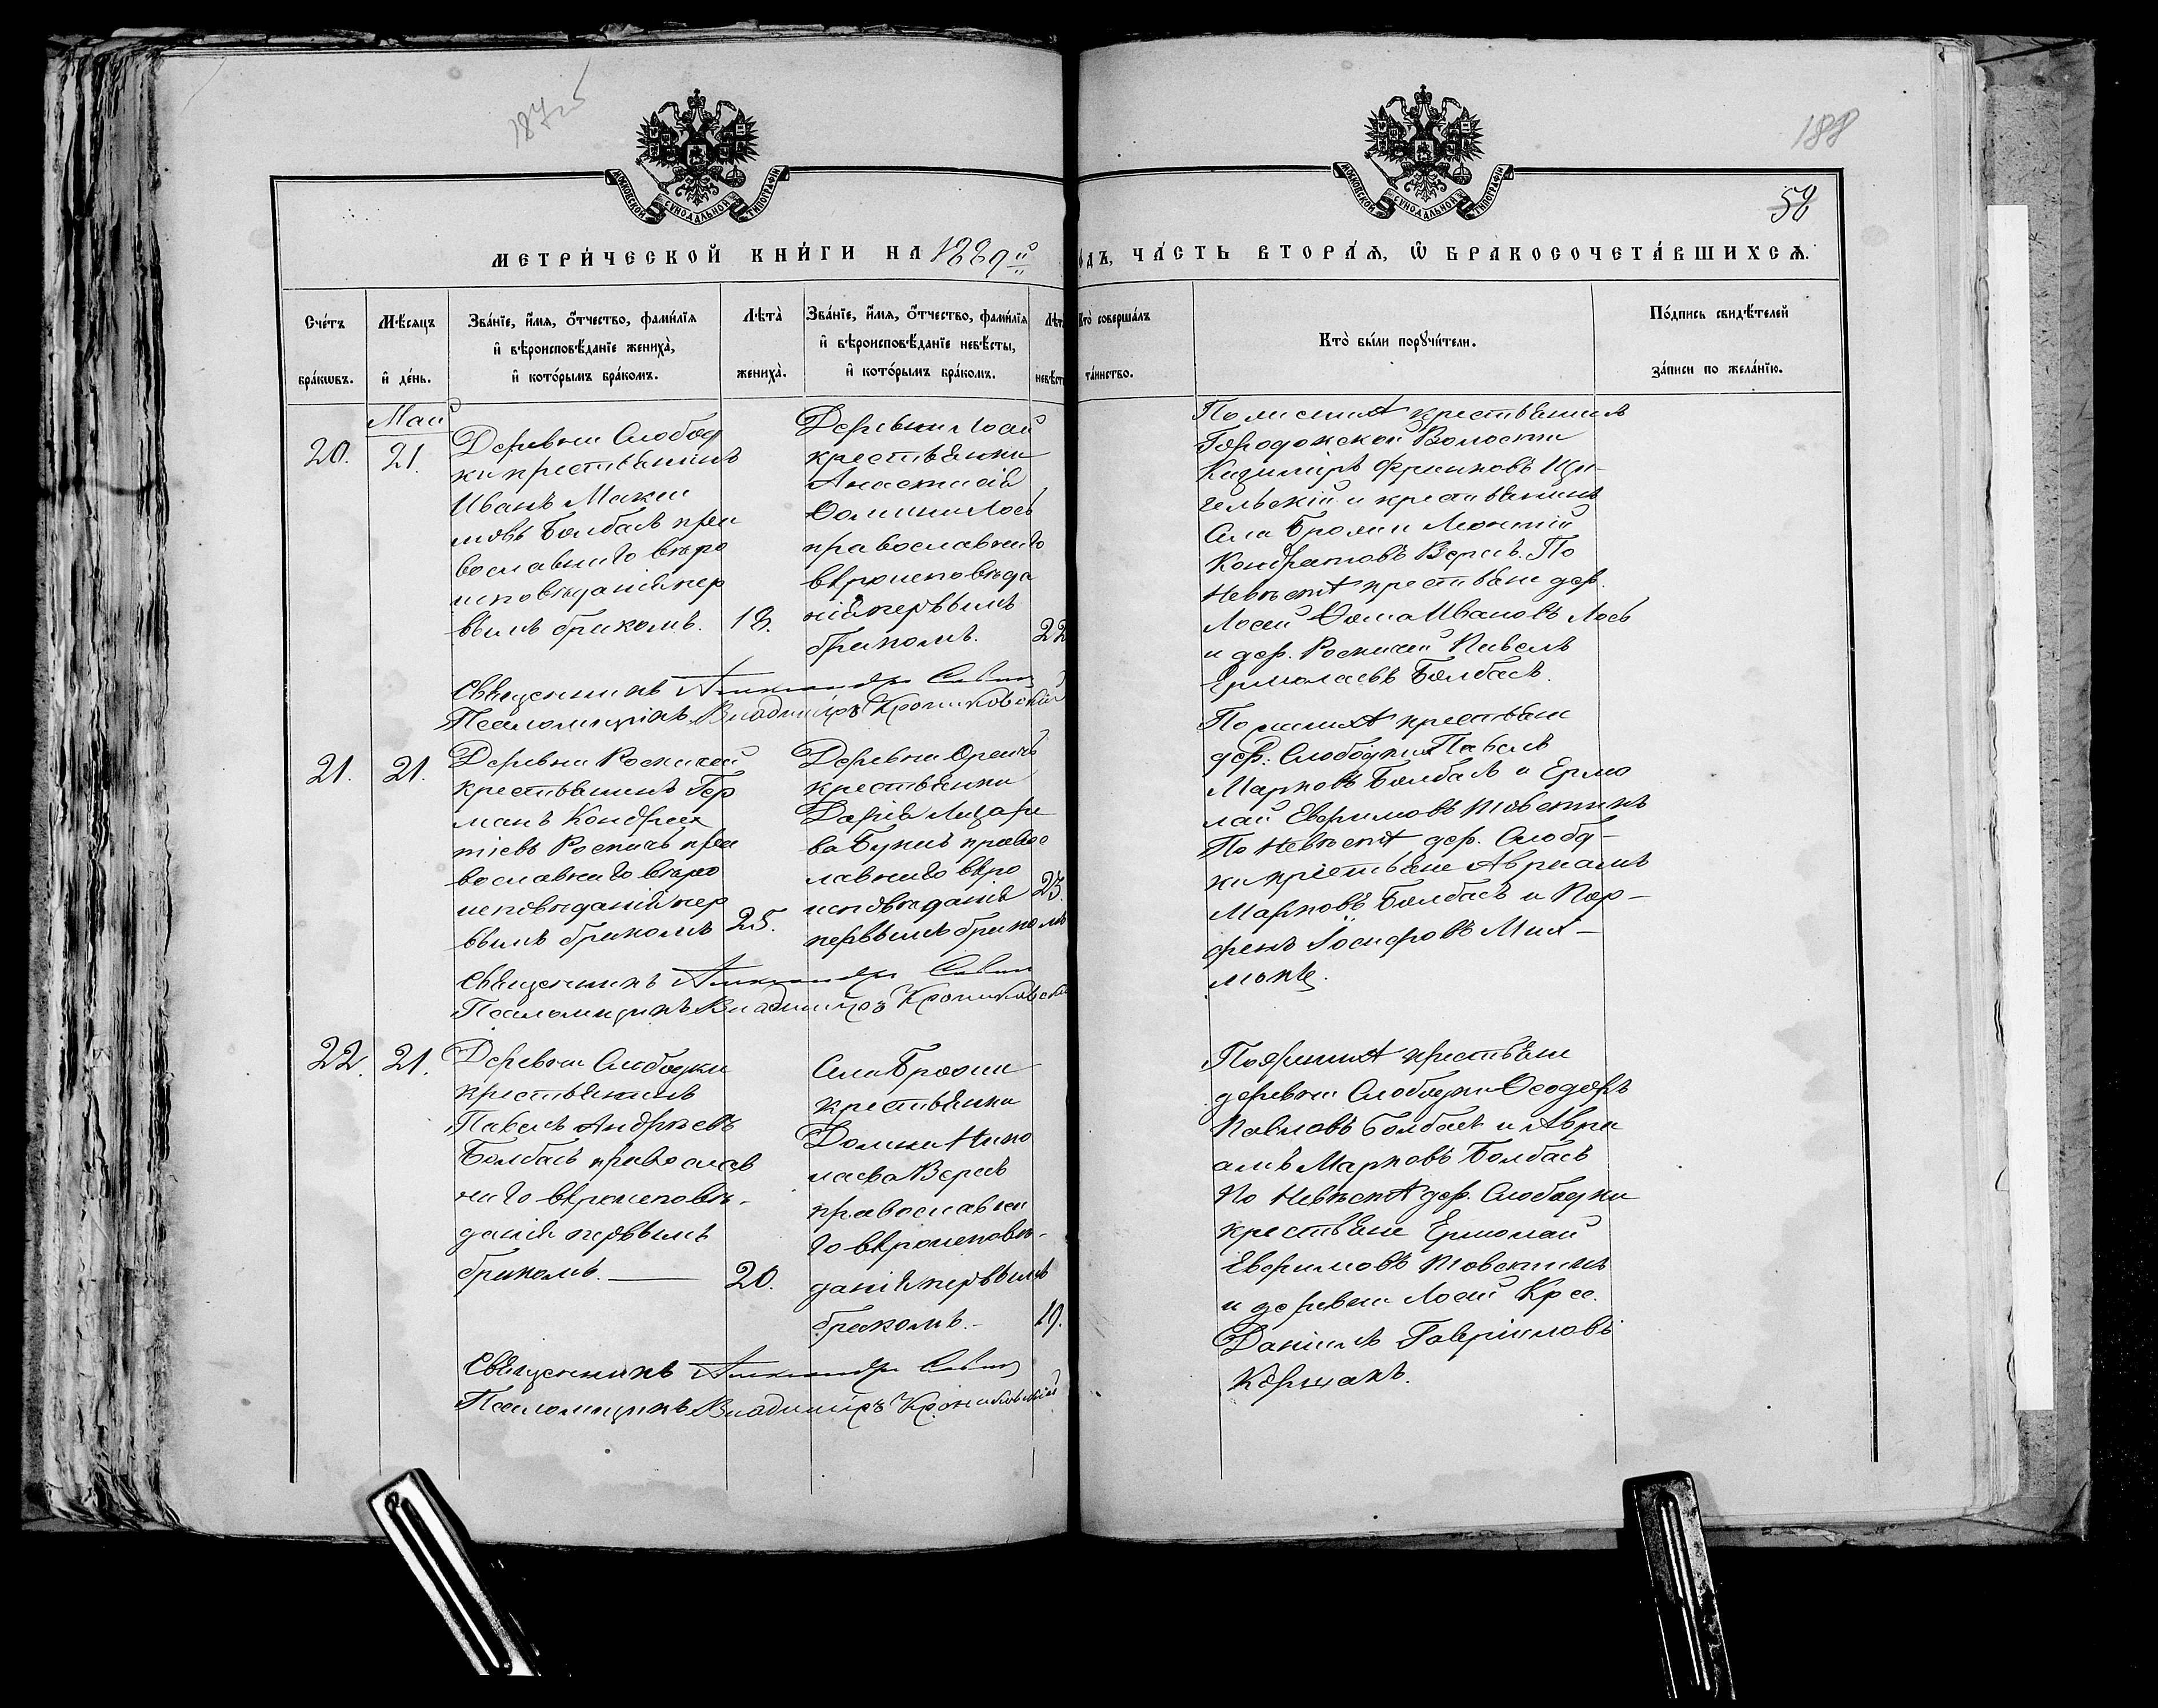 188
58
МОСКОВСКОЙ СѴНОДАЛЬНОЙ ТИПОГРАФІИ
МОСКОВСКОЙ СѴНОДАЛЬНОЙ ТИПОГРАФІИ
МЕТРИ́ЧЕСКОЙ КНИ́ГИ НА 1889й
ОДЪ, ЧА́СТЬ ВТОРА́Ѧ, Ѡ҆ БРАКОСОЧЕТА́ВШИХСѦ.
Сче́тъ бра́кѡвъ.
Мѣ́сѧцъ и҆ де́нь.
Зва́нїе, и҆́мѧ, ѻ҆́тчество, фами́лїѧ
и҆ вѣроисповѣ́данїе жениха̀,
и҆ кото́рымъ бра́комъ.
Лѣта̀ жениха̀.
Зва́нїе, и҆́мѧ, ѻ҆́тчество, фами́лїѧ
и҆ вѣроисповѣ́данїе невѣ́сты,
и҆ кото́рымъ бра́комъ.
Лѣта
невѣст
Кто̀ соверша́лъ
та́инство.
Кто̀ бы́ли порꙋчи́тели.
По́дпись свидѣ́телей
за́писи по жела́нїю.
Май
20.
21.
Деревни Слобод
ки крестьянинъ
Иванъ Макси
мовъ Болбасъ пра
вославнаго вѣро
исповѣданія пер
вымъ бракомъ.
18.
Деревни Лосей
крестьянка
Анастасія
Ѳомина Лось
православнаго
вѣроисповѣда
нія первымъ
бракомъ.
22
Священникъ Александръ
Псаломщикъ Владиміръ
По женихѣ крестьянинъ
Городокской Волости
Казиміръ
и крестьянинъ
Села Леонтій
Кондратовъ Вересъ. По
Невѣстѣ крестьяне дер.
Лосей Ѳома Ивановъ Лось
и дер. Роскачей Павелъ
Ермолаевъ Болбасъ.
21.
21.
Деревни Роскачей
крестьянинъ Гер
манъ Кондра
тіевъ Роскачъ пра
вославнаго вѣро
исповѣданія пер
вымъ бракомъ
25.
Деревни
крестьянка
Дарія Лазаре
ва правос
лавнаго вѣро
исповѣданія
первымъ бракомъ
23.
Священникъ Александръ
Псаломщикъ Владиміръ
По женихѣ крестьяне
дер. Слободки Павелъ
Марковъ Болбасъ и Ермо
лай Евфимовъ Товстикъ
По Невѣстѣ дер. Слобод-
ки крестьяне Авраамъ
Марковъ Болбасъ и Пар-
фенъ Іосифовъ
22.
21.
Деревни Слободки
крестьянинъ
Павелъ Андреевъ
Болбасъ православ
наго вѣроисповѣ-
данія первымъ
бракомъ.
20.
Села
крестьянка
Домна Нико
лаева Вересъ
православна
го вѣроисповѣ-
данія первымъ
бракомъ.-
19.
Священникъ Александръ
Псаломщикъ Владиміръ
По женихѣ крестьяне
деревни Слободки Ѳеодоръ
Павловъ Болбасъ и Авра
амъ Марковъ Болбасъ
По Невѣстѣ дер. Слободки
крестьяне Ермолай
Евфимовъ Товстикъ
и деревни Лосей Крес.
Даніилъ Гавріиловъ
Коршакъ.